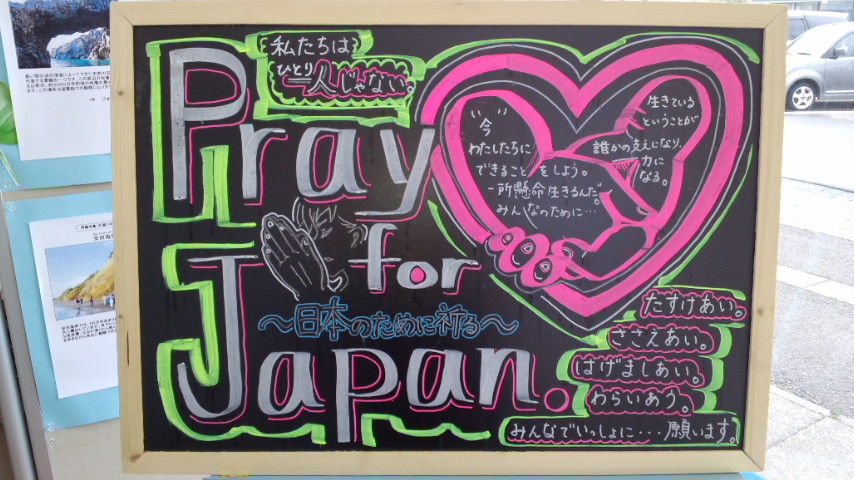 私たちは
ひとり
一人じゃない。
Pray
for
～日本のために祈る～
Japan.
"今"
わたしたちに
できることをしよう。
一所懸命生きるんだ。
みんなのために…
生きている
ということが
誰かの支えになり、
力に
なる。
たすけあい。
ささえあい。
はげましあい。
わらいあう。
みんなでいっしょに･･･願います。